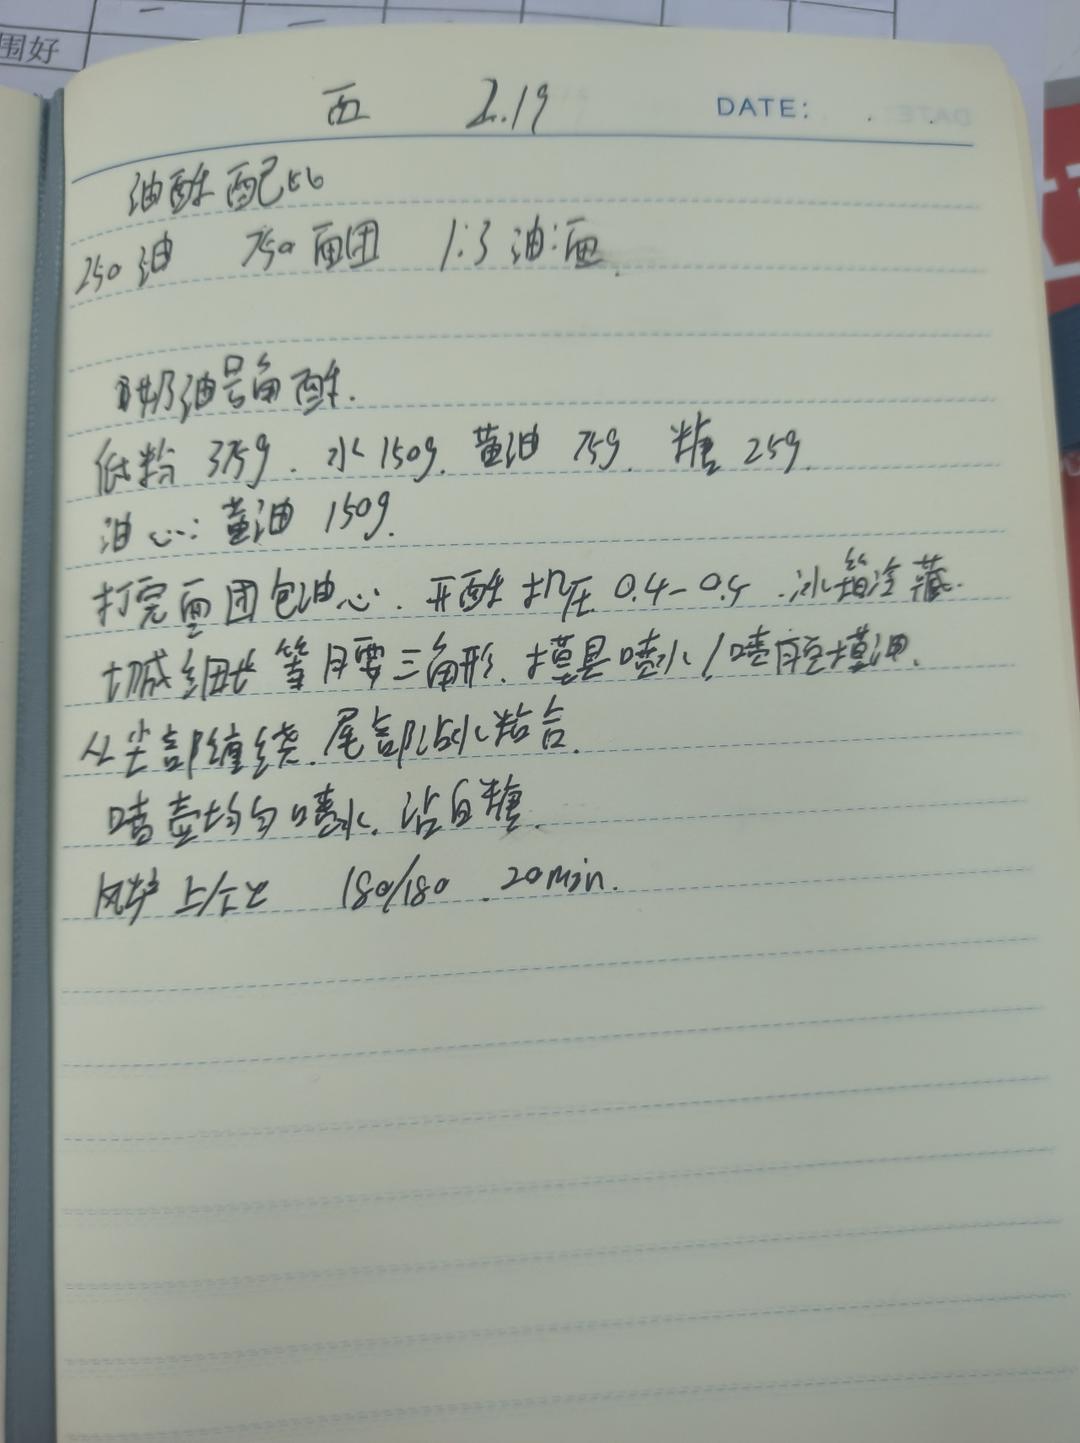 围好
西 2.19 DATE: . .
油酥配比
250油 750面团 1:3 油:面.
奶油号角酥.
低粉 375g. 水150g. 黄油 75g. 糖 25g.
油心: 黄油 150g.
打完面团包油心. 开酥机压 0.4-0.5. 冰箱冷藏.
切成细长等腰三角形. 模具喷水/喷脱模油.
从尖部缠绕. 尾部沾水粘合.
喷壶均匀喷水. 沾白糖.
风炉 上/下火 180/180. 20min.